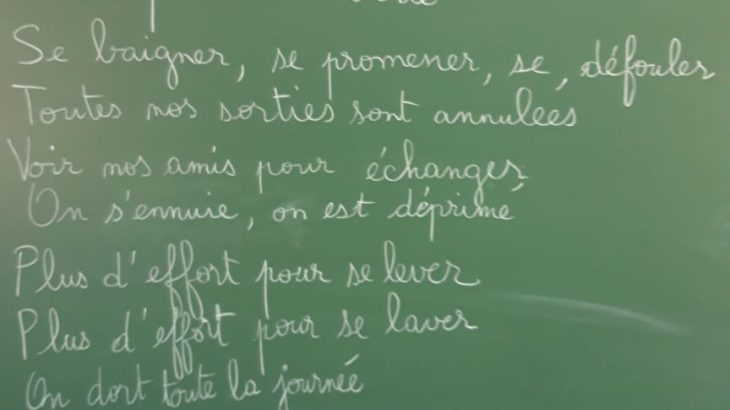 Se baigner, se promener, se, défouler
Toutes nos sorties sont annulées
Voir nos amis pour échanger,
On s'ennuie, on est déprimé
Plus d'effort pour se lever
Plus d'effort pour se laver
On dort toute la journée